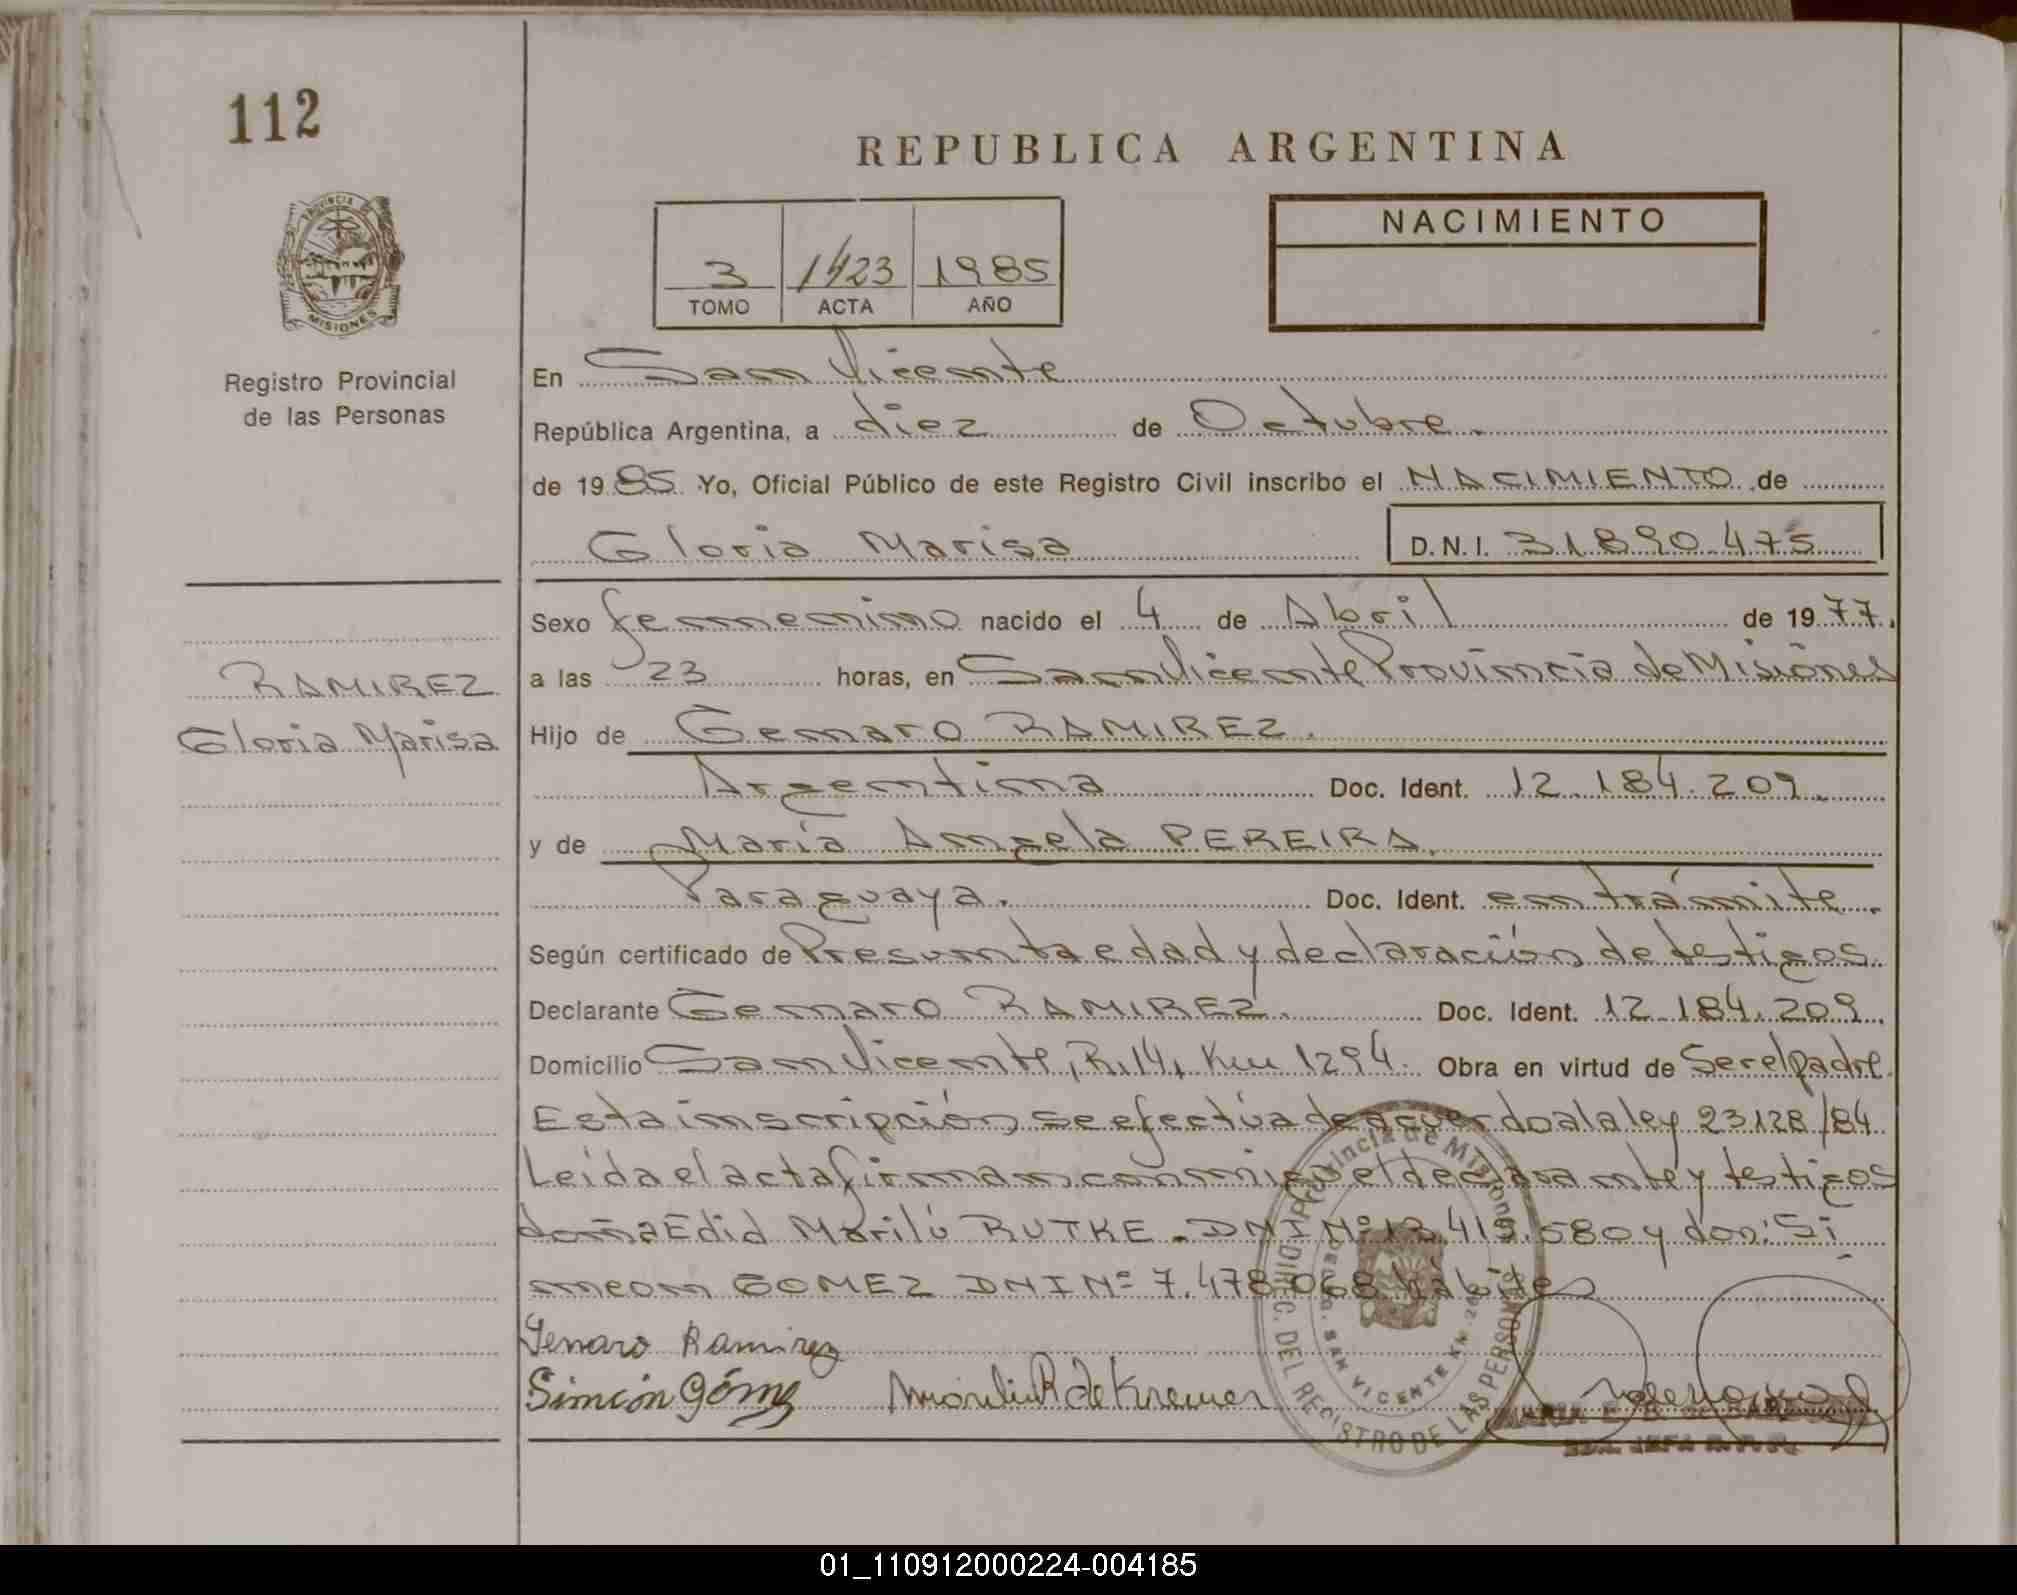 112
REPUBLICA ARGENTINA
PROVINCIA DE
MISIONES
Registro Provincial
de las Personas
3 1423 1985
TOMO ACTA AÑO
NACIMIENTO
En San Vicente
República Argentina, a diez de Octubre.
de 1985 Yo, Oficial Público de este Registro Civil inscribo el NACIMIENTO de
Gloria Marisa D.N.I. 31890475
Sexo femenino nacido el 4 de Abril de 1977.
RAMIREZ
a las 23 horas, en San Vicente Provincia de Misiones
Gloria Marisa
Hijo de Genaro RAMIREZ.
Argentina Doc. Ident. 12.184.209.
y de María Angela PEREIRA.
Paraguaya. Doc. Ident. en trámite.
Según certificado de Presunta edad y declaración de testigos.
Declarante Genaro RAMIREZ. Doc. Ident. 12.184.209.
Domicilio San Vicente, R.14, Km 1294. Obra en virtud de Ser el padre.
Esta inscripción se efectúa de acuerdo a la ley 23128/84
Leída el acta firman conmigo el declarante y testigos
doña Edid Marilú RUTKE. DNI Nº 13.419.580 y don: Si
meon GOMEZ DNI Nº 7.478.068 hábiles
Genaro Ramirez
Simeón Gómez Marilú R de Kremer
Provincia de Misiones
DIREC. DEL REGISTRO DE LAS PERSONAS
SAN VICENTE KM.
01_110912000224-004185